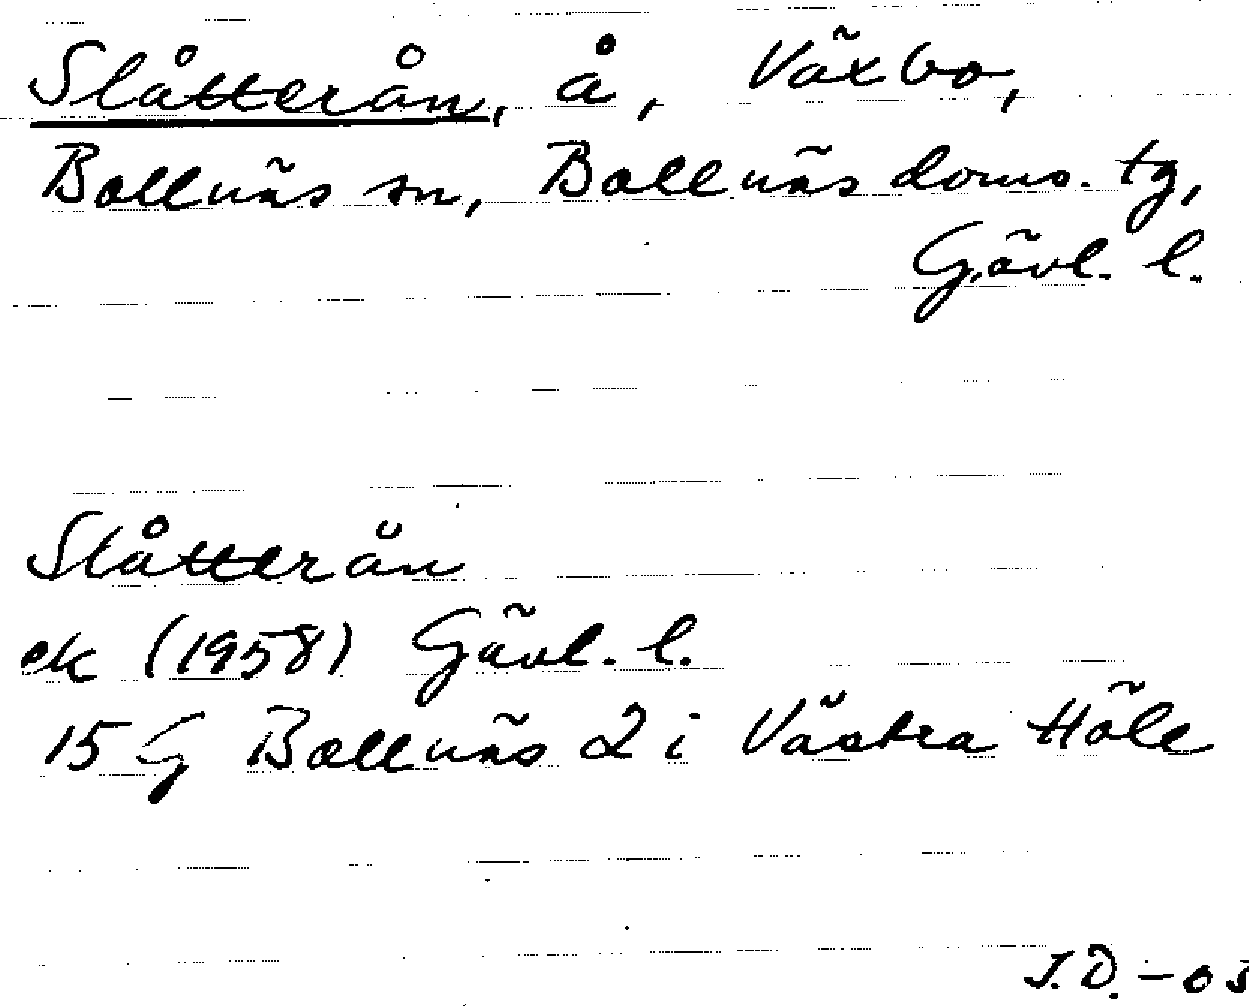 Slåtterån, å, Växbo,
Bollnäs sn, Bollnäs doms. tg,
Gävl. l.
Slåtterån
ek (1958) Gävl. l.
15 G Bollnäs 2 i Västra Höle
J.D. - 05